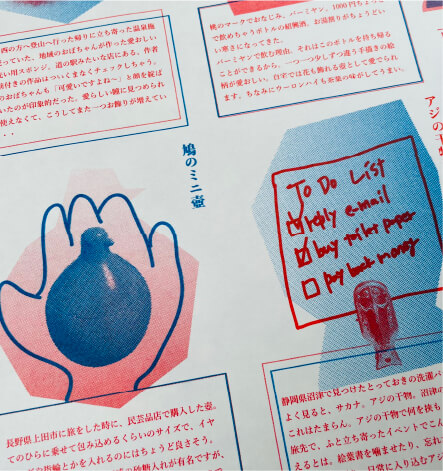 西の方へ登山へ行った帰りに立ち寄った温泉施
売っていた、地域のおばちゃんが作った愛おしい
い用スポンジ。道の駅みたいな店にある、作者
前付きの作品はついくまなくチェックしちゃう。
のおばちゃんも「可愛いですよね〜」と顔を綻ば
いたのが印象的だった。愛らしい瞳に見つめられ
使えなくて、こうしてまた一つお飾りが増えてい
・・・
桃のマークでおなじみ、バーミヤン。1000円ちょっ
で飲めちゃうボトルの紹興酒、お湯割りがちょうどい
い寒さになってきた。
バーミヤンで飲む理由、それはこのボトルを持ち帰る
ことができるから。一つ一つ少しずつ違う手描きの絵
柄が愛おしい。自宅では花も飾れる壺として愛でられ
ます。ちなみにウーロンハイも茶葉の味がしてうまい。
鳩のミニ壺
アジの干物
To Do List
reply e-mail
buy toilet paper
pay back money
長野県上田市に旅をした時に、民芸品店で購入した壺。
てのひらに乗せて包み込めるくらいのサイズで、イヤ
や指輪とかを入れるのにはちょうど良さそう。
砂糖入れが有名ですが、
静岡県沼津で見つけたとっておきの洗濯バ
よく見ると、サカナ。アジの干物。沼津の
これはたまらん。アジの干物で何を挟も
旅先で、ふと立ち寄ったイベントでこん
えるとは。絵葉書を噛ませたり、忘れて
常に入り込むアジ